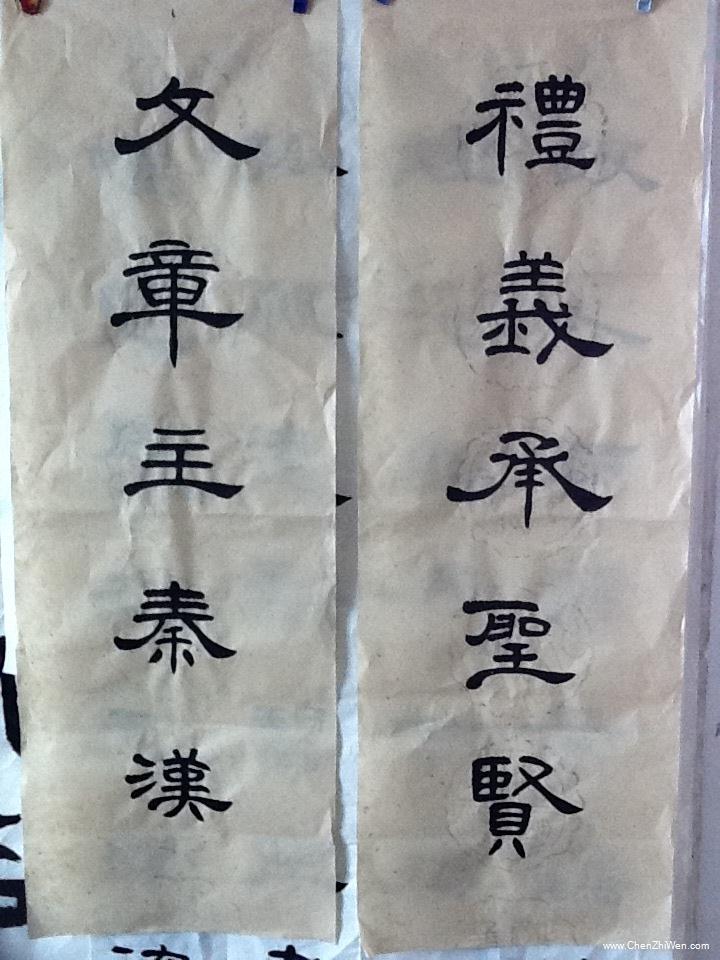 禮義承聖賢
文章主秦漢
www.ChenZhiWen.com